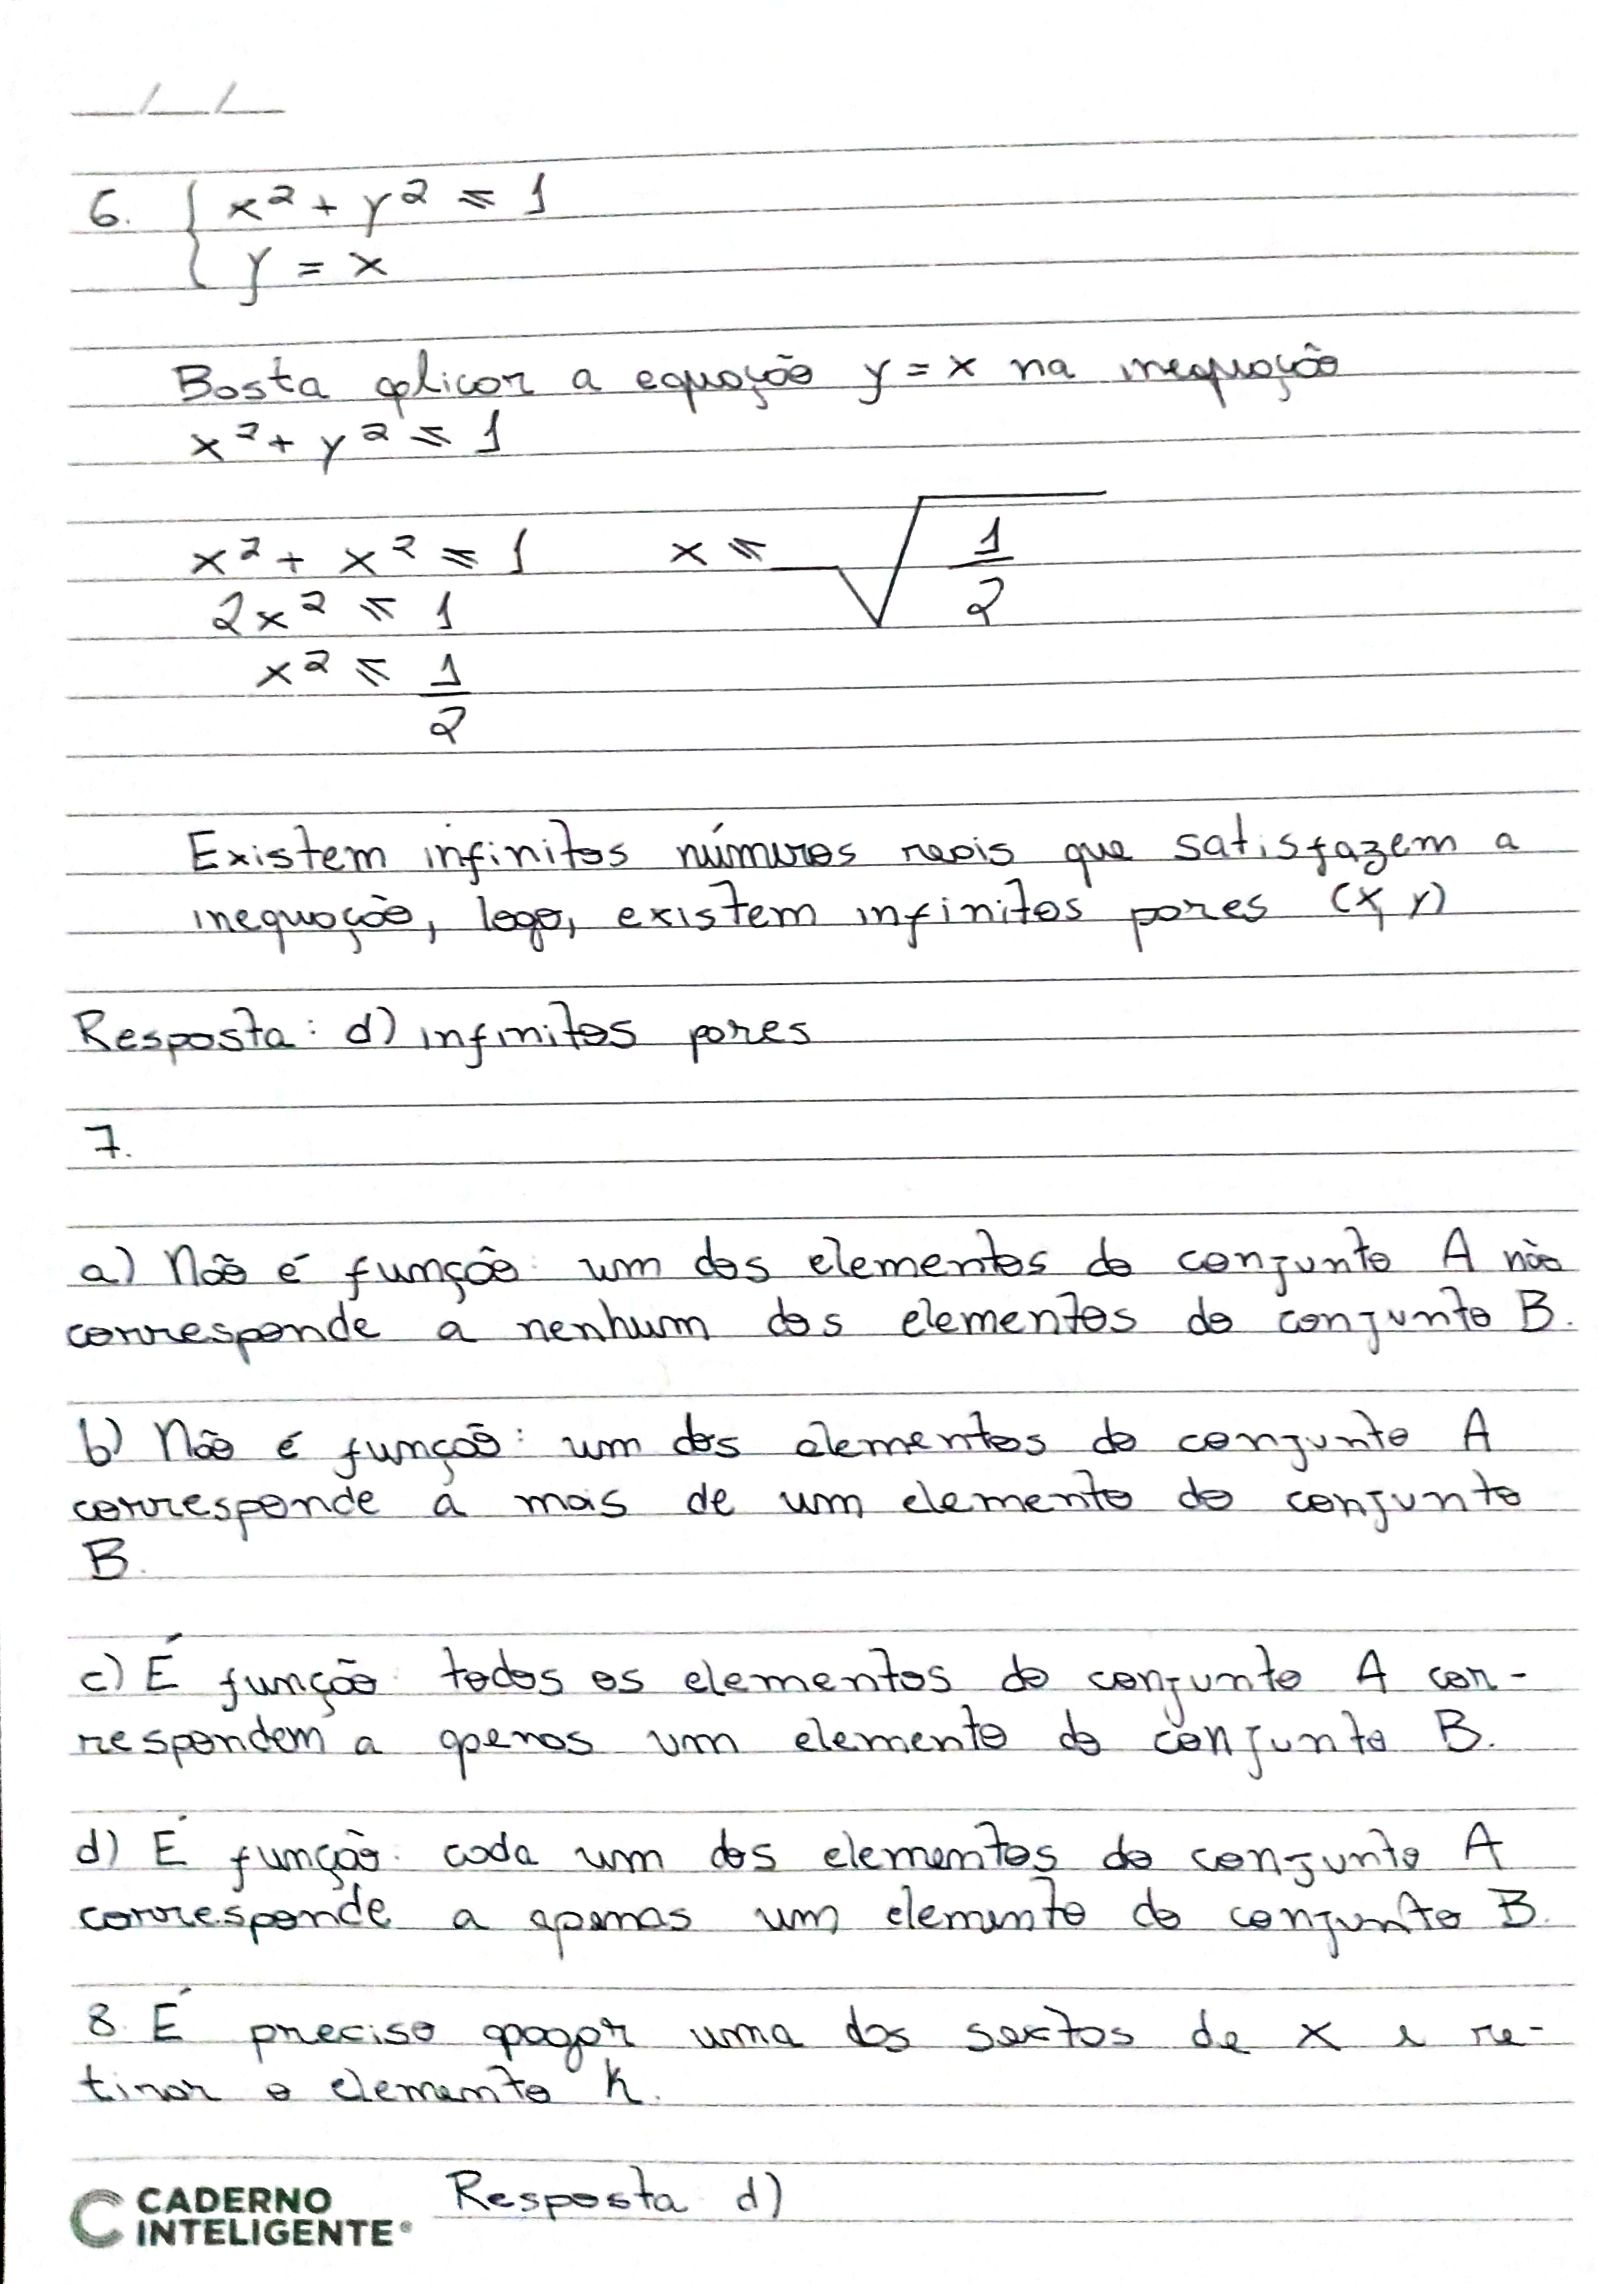 __/__/__
6. { x² + y² ≤ 1
y = x
Basta aplicar a equação y = x na inequação
x² + y² ≤ 1
x² + x² ≤ 1    x ≤ √(1/2)
2x² ≤ 1
x² ≤ 1/2
Existem infinitos números reais que satisfazem a
inequação, logo, existem infinitos pares (x, y)
Resposta: d) infinitos pares
7.
a) Não é função: um dos elementos do conjunto A não
corresponde a nenhum dos elementos do conjunto B.
b) Não é função: um dos elementos do conjunto A
corresponde a mais de um elemento do conjunto
B.
c) É função: todos os elementos do conjunto A cor-
respondem a apenas um elemento do conjunto B.
d) É função: cada um dos elementos do conjunto A
corresponde a apenas um elemento do conjunto B.
8. É preciso apagar uma das setas de x e re-
tirar o elemento k.
Resposta d)
CADERNO
INTELIGENTE®